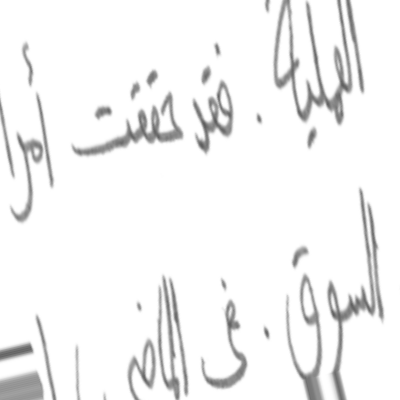 العملية . فقد حققت أمرا
السوق . في الماضي